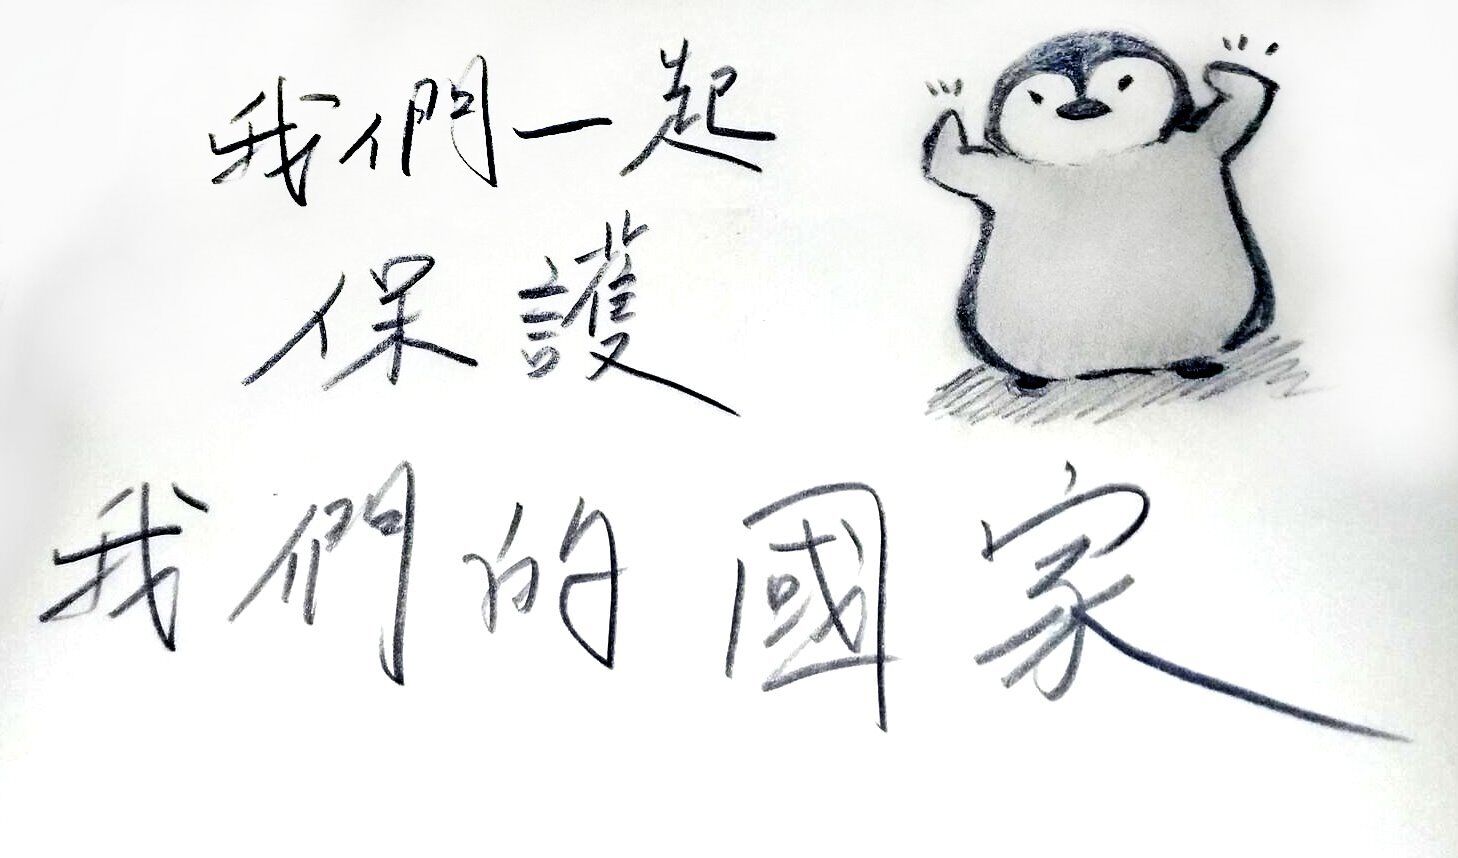 我們一起
保護
我們的國家